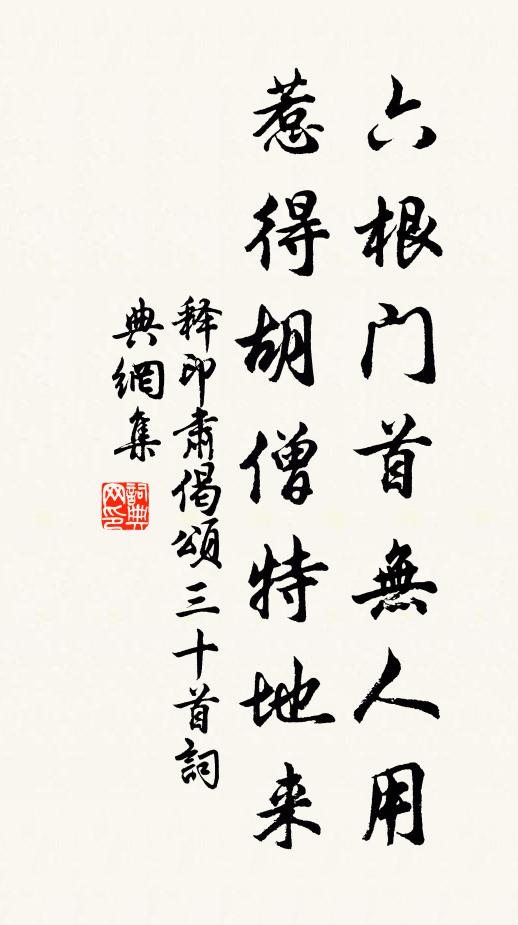 六根門首無人用
惹得胡僧特地来
釋印肅偈頌三十首詞
典網集
詞典
网印